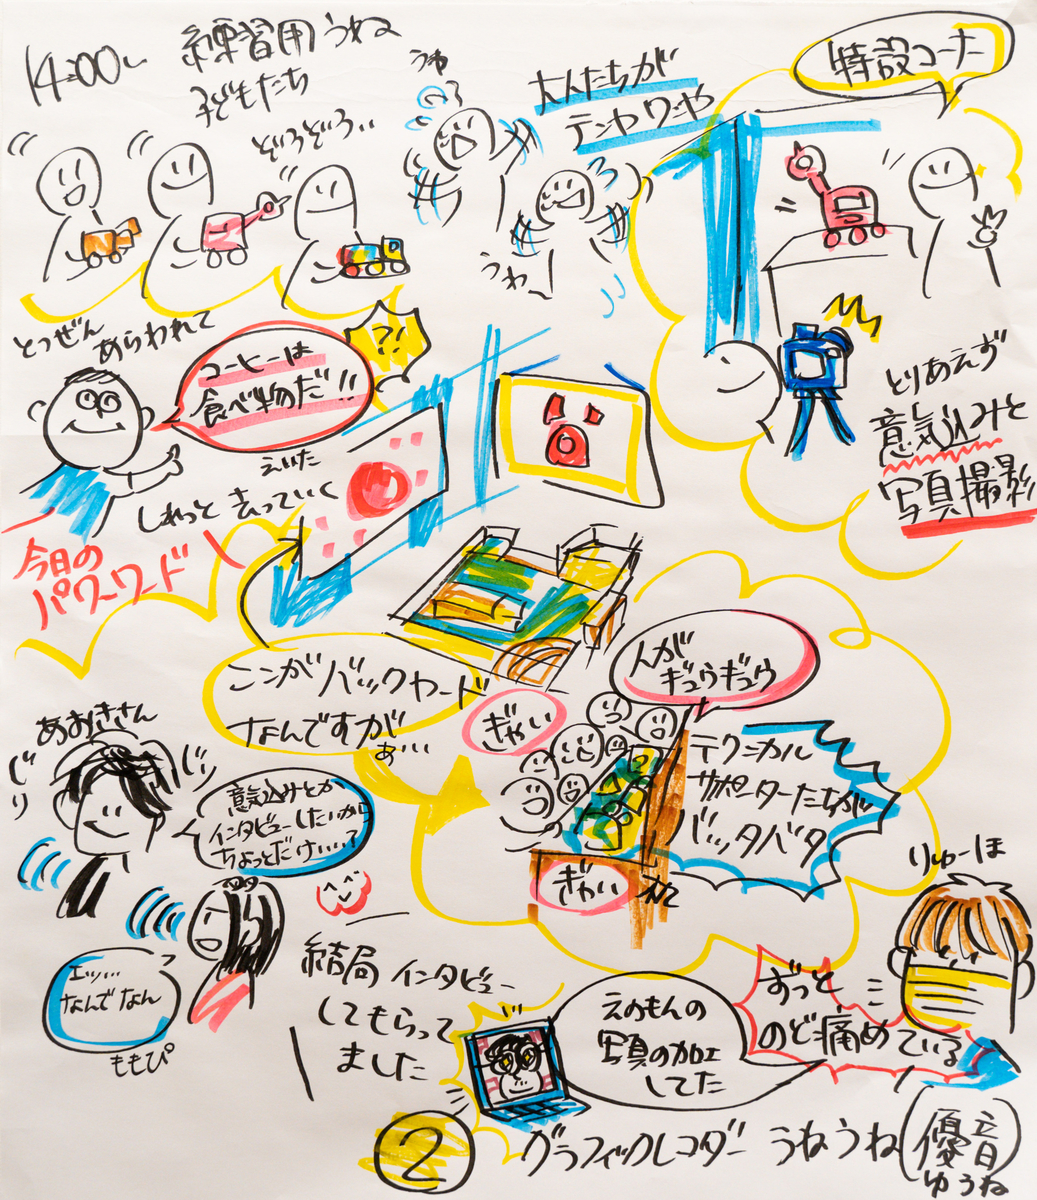 14:00〜
練習用うねる
子どもたち
ぞろぞろ‥
うわ
大人たちが
テンヤワンヤ
うわ〜
特設コーナー
とつぜん
あらわれて
コーヒーは
食べ物だ!!
?!
えいた
しれっと去っていく
今日の
パワーワード
とりあえず
意気込みと
写真撮影
ここがバックヤード
なんですが
あ…
人が
ギュウギュウ
ぎゃい
ぎゃい
テクニカル
サポーターたちが
バッタバタ
あおきさん
じり
じり
意気込みとか
インタビューしたいかに
ちょっとだけ‥‥?
エッ…
なんでなん
ももぴ
結局インタビュー
してもらって
ました
りゅーほ
ずっと
のど痛めている
えのもんの
写真の加工
してた
2
グラフィックレコーダー うねうね(優音
ゆうね)